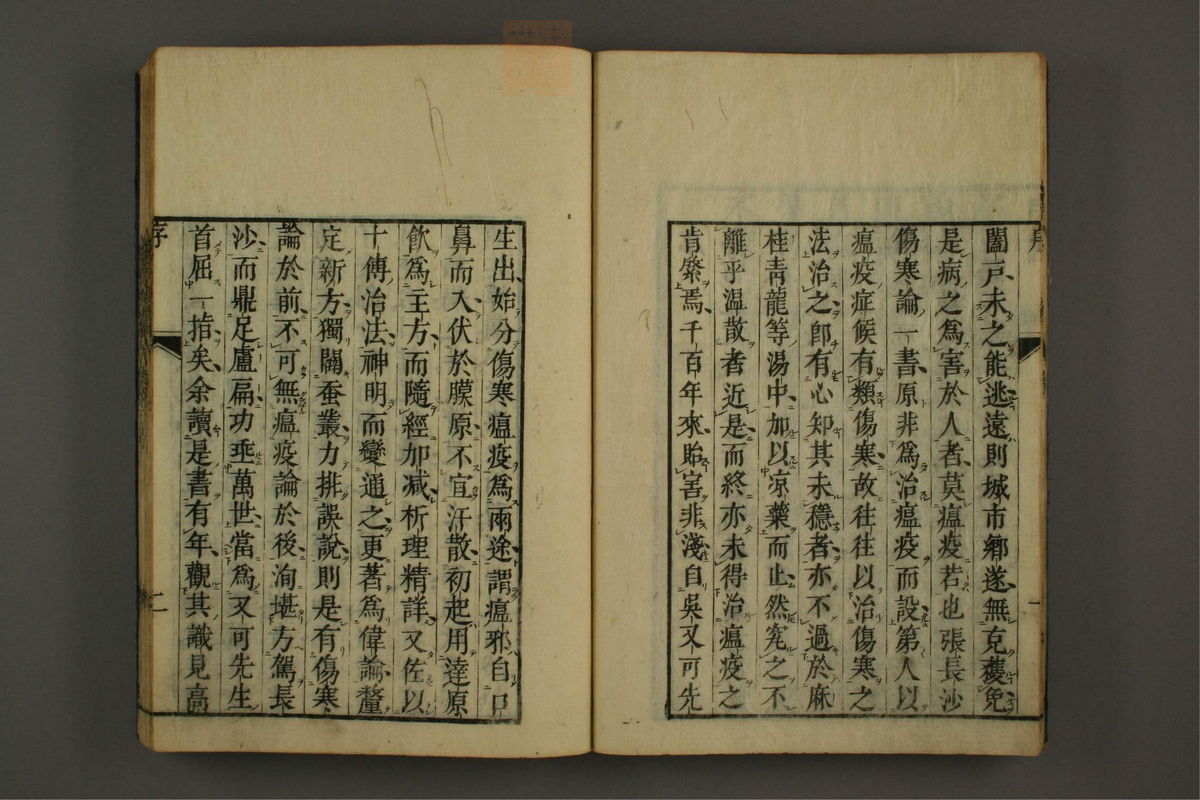 序
闔戸未之能逃遠則城市鄉遂無克獲免
是病之為害於人者莫瘟疫若也張長沙
傷寒論一書原非為治瘟疫而設第人以
瘟疫症候有類傷寒故往往以治傷寒之
法治之卽有心知其未穩者亦不過於麻
桂青龍等湯中加以凉藥而止然究之不
離乎温散者近是而終亦未得治瘟疫之
肯綮焉千百年來貽害非淺自吳又可先
一
生出始分傷寒瘟疫爲兩途謂瘟邪自口
鼻而入伏於膜原不宜汗散初起用達原
飲爲主方而隨經加减析理精詳又佐以
十傳治法神明而變通之更著爲偉論釐
定新方獨闢蚕叢力排誤說則是有傷寒
論於前不可無瘟疫論於後洵堪方駕長
沙而鼎足盧扁功乖萬世當爲又可先生
首屈一指矣余讀是書有年觀其識見高
序
二